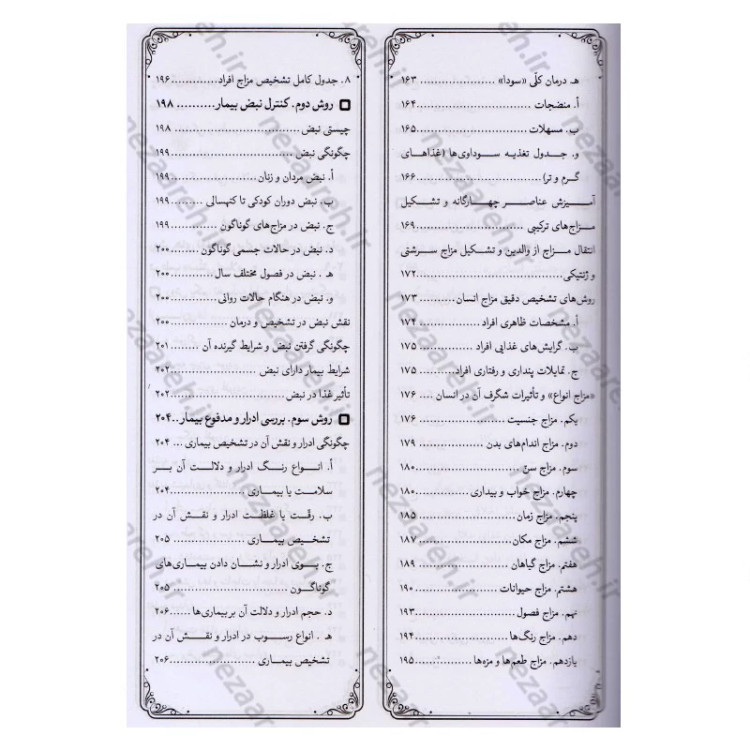 هـ درمان کلّی «سودا» ........................ ۱۶۳
أ. منضجات ........................ ۱۶۴
ب. مسهلات ........................ ۱۶۵
و. جدول تغذیه سوداوی‌ها (غذاهای
گرم و تر) ........................ ۱۶۶
آمیزش عناصر چهارگانه و تشکیل
مزاج‌های ترکیبی ........................ ۱۶۹
انتقال مزاج از والدین و تشکیل مزاج سرشتی
و ژنتیکی ........................ ۱۷۲
روش‌های تشخیص دقیق مزاج انسان .......... ۱۷۳
أ. مشخصات ظاهری افراد ........................ ۱۷۴
ب. گرایش‌های غذایی افراد ........................ ۱۷۵
ج. تمایلات پنداری و رفتاری افراد .......... ۱۷۵
«مزاج انواع» و تأثیرات شگرف آن در انسان .... ۱۷۶
یکم. مزاج جنسیت ........................ ۱۷۶
دوم. مزاج اندام‌های بدن ........................ ۱۷۹
سوم. مزاج سنّ ........................ ۱۸۰
چهارم. مزاج خواب و بیداری ........................ ۱۸۰
پنجم. مزاج زمان ........................ ۱۸۵
ششم. مزاج مکان ........................ ۱۸۷
هفتم. مزاج گیاهان ........................ ۱۸۹
هشتم. مزاج حیوانات ........................ ۱۹۰
نهم. مزاج فصول ........................ ۱۹۳
دهم. مزاج رنگ‌ها ........................ ۱۹۴
یازدهم. مزاج طعم‌ها و مزه‌ها ........................ ۱۹۵
۸. جدول کامل تشخیص مزاج افراد .......... ۱۹۶
روش دوم. کنترل نبض بیمار .......... ۱۹۸
چیستی نبض ........................ ۱۹۸
چگونگی نبض ........................ ۱۹۹
أ. نبض مردان و زنان ........................ ۱۹۹
ب. نبض دوران کودکی تا کهنسالی .......... ۱۹۹
ج. نبض در مزاج‌های گوناگون .......... ۱۹۹
د. نبض در حالات جسمی گوناگون .......... ۲۰۰
هـ . نبض در فصول مختلف سال .......... ۲۰۰
و. نبض در هنگام حالات روانی .......... ۲۰۰
نقش نبض در تشخیص و درمان .......... ۲۰۰
چگونگی گرفتن نبض و شرایط گیرنده آن .......... ۲۰۱
شرایط بیمار دارای نبض ........................ ۲۰۲
تأثیر غذا در نبض ........................ ۲۰۲
روش سوم. بررسی ادرار و مدفوع بیمار .. ۲۰۴
چگونگی ادرار و نقش آن در تشخیص بیماری .... ۲۰۴
أ. انواع رنگ ادرار و دلالت آن بر
سلامت یا بیماری ........................ ۲۰۴
ب. رقت یا غلظت ادرار و نقش آن در
تشخیص بیماری ........................ ۲۰۵
ج. بوی ادرار و نشان دادن بیماری‌های
گوناگون ........................ ۲۰۵
د. حجم ادرار و دلالت آن بر بیماری‌ها ...... ۲۰۶
هـ . انواع رسوب در ادرار و نقش آن در
تشخیص بیماری ........................ ۲۰۶
nezaareh.ir